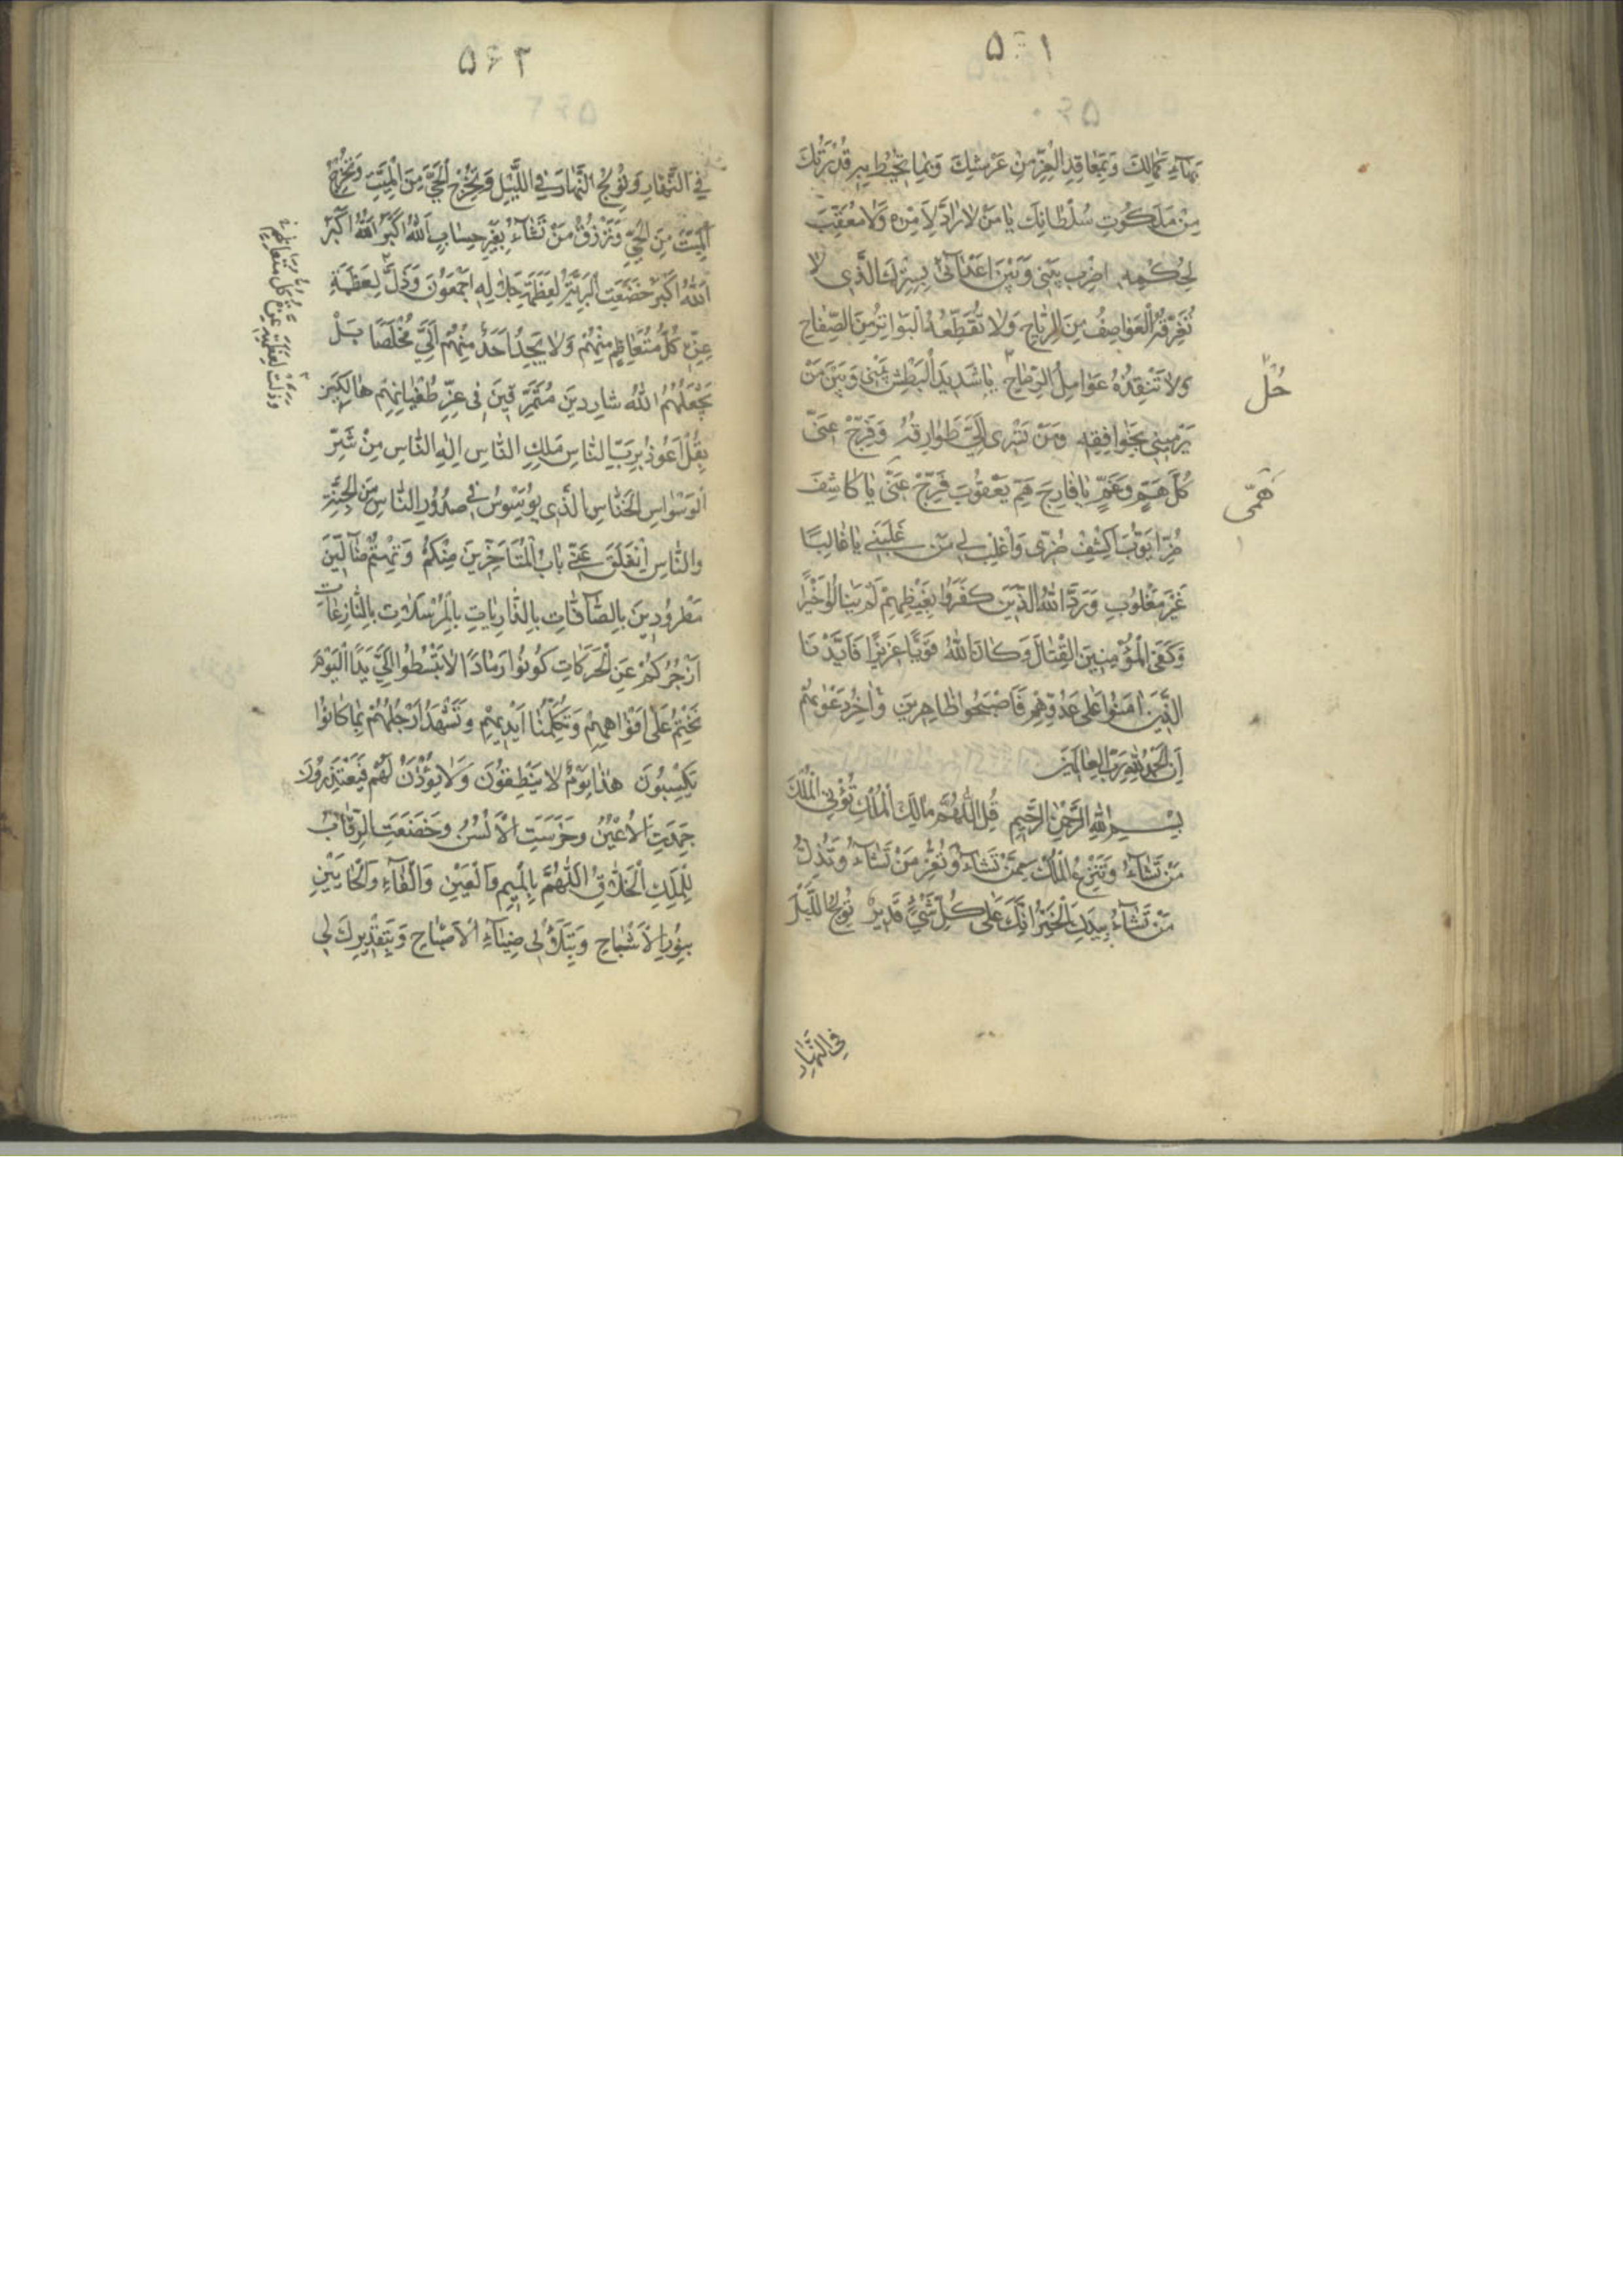 ۵۶۱
بَهآءِ كَمالِكَ وَبِمَعاقِدِ الْعِزِّ مِنْ عَرْشِكَ وَبِما تُحيطُ بِهِ قُدْرَتُكَ
مِنْ مَلَكُوتِ سُلْطانِكَ يا مَنْ لا رادَّ لِاَمْرِهِ وَلا مُعَقِّبَ
لِحُكْمِهِ اضْرِبْ بَيْني وَبَيْنَ اَعْدآئي بِسِتْرِكَ الَّذي لا
تُفَرِّقُهُ الْعَواصِفُ مِنَ الرِّياحِ وَلا تُقَطِّعُهُ الْبَواتِرُ مِنَ الصِّفاحِ
وَلا تَنْفِذُهُ عَوامِلُ الرِّماحِ يا شَديدَ الْبَطْشِ بَيْني وَبَيْنَ مَنْ
حُلْ
يَرْميني بِخَوافِقِهِ وَمَنْ تَسْري اِلَيَّ طَوارِقُهُ وَفَرِّجْ عَنّي
كُلَّ هَمٍّ وَغَمٍّ يا فارِجَ هَمِّ يَعْقُوبَ فَرِّجْ عَنّي يا كاشِفَ
هَمّي
ضُرِّ اَيُّوبَ اكْشِفْ ضُرّي وَاغْلِبْ لي مَنْ غَلَبَني يا غالِبًا
غَيْرَ مَغْلُوبٍ وَرَدَّ اللهُ الَّذينَ كَفَرُوا بِغَيْظِهِمْ لَمْ يَنالُوا خَيْرًا
وَكَفَى الْمُؤْمِنينَ الْقِتالَ وَكانَ اللهُ قَوِيًّا عَزيزًا فَاَيَّدْنَا
الَّذينَ امَنُوا عَلى عَدُوِّهِمْ فَاَصْبَحُوا ظاهِرينَ وَاخِرُ دَعْويهُمْ
اَنِ الْحَمْدُ لِلّهِ رَبِّ الْعالَمينَ
بِسْمِ اللهِ الرَّحْمنِ الرَّحيمِ قُلِ اللّهُمَّ مالِكَ الْمُلْكِ تُؤْتِي الْمُلْكَ
مَنْ تَشآءُ وَتَنْزِعُ الْمُلْكَ مِمَّنْ تَشآءُ وَتُعِزُّ مَنْ تَشآءُ وَتُذِلُّ
مَنْ تَشآءُ بِيَدِكَ الْخَيْرُ اِنَّكَ عَلى كُلِّ شَيْءٍ قَديرٌ تُولِجُ اللَّيْلَ
فِي النَّهارِ
۵۶۲
فِي النَّهارِ وَتُولِجُ النَّهارَ فِي اللَّيْلِ وَتُخْرِجُ الْحَيَّ مِنَ الْمَيِّتِ وَتُخْرِجُ
الْمَيِّتَ مِنَ الْحَيِّ وَتَرْزُقُ مَنْ تَشآءُ بِغَيْرِ حِسابٍ اَللهُ اَكْبَرُ اَللهُ اَكْبَرُ
اَللهُ اَكْبَرُ خَضَعَتِ الْبَرِيَّةُ لِعَظَمَةِ جَلالِهِ اَجْمَعُونَ وَذَلَّ لِعَظَمَةِ
عِزِّهِ كُلُّ مُتَعاظِمٍ مِنْهُمْ وَلا يَجِدُ اَحَدٌ مِنْهُمْ اِلَيَّ مُخْلَصًا بَلْ
يَجْعَلُهُمُ اللهُ شارِدينَ مُتَمَزِّقينَ في عِزِّ طُغْيانِهِمْ هالِكينَ
بِقُلْ اَعُوذُ بِرَبِّ النّاسِ مَلِكِ النّاسِ اِلهِ النّاسِ مِنْ شَرِّ
الْوَسْواسِ الْخَنّاسِ الَّذي يُوَسْوِسُ في صُدُورِ النّاسِ مِنَ الْجِنَّةِ
وَالنّاسِ انْغَلَقَ عَنّي بابُ الْمُتَاَخِّرينَ مِنْكُمْ وَتِهْتُمْ ضآلّينَ
مَطْرُودينَ بِالصّآفّاتِ بِالذّارِياتِ بِالْمُرْسَلاتِ بِالنّازِعاتِ
اَزْجُرُكُمْ عَنِ الْحَرَكاتِ كُونُوا رَمادًا لا تَبْسُطُوا اِلَيَّ يَدًا اَلْيَوْمَ
نَخْتِمُ عَلى اَفْواهِهِمْ وَتُكَلِّمُنا اَيْديهِمْ وَتَشْهَدُ اَرْجُلُهُمْ بِما كانُوا
يَكْسِبُونَ هذا يَوْمُ لا يَنْطِقُونَ وَلا يُؤْذَنُ لَهُمْ فَيَعْتَذِرُونَ
جَمَدَتِ الْاَعْيُنُ وَخَرَسَتِ الْاَلْسُنُ وَخَضَعَتِ الرِّقابُ
لِلْمَلِكِ الْخَلاّقِ اَللّهُمَّ بِالْميمِ وَالْعَيْنِ وَالْفآءِ وَالْحآئَيْنِ
بِنُورِ الْاَشْباحِ وَبِتَلَأْلُؤِ ضِيآءِ الْاَصْباحِ وَبِتَقْديرِكَ لي
وَذَلَّتْ لِعَظَمَةِ عِزِّهِ كُلُّ مُتَعاظِمٍ